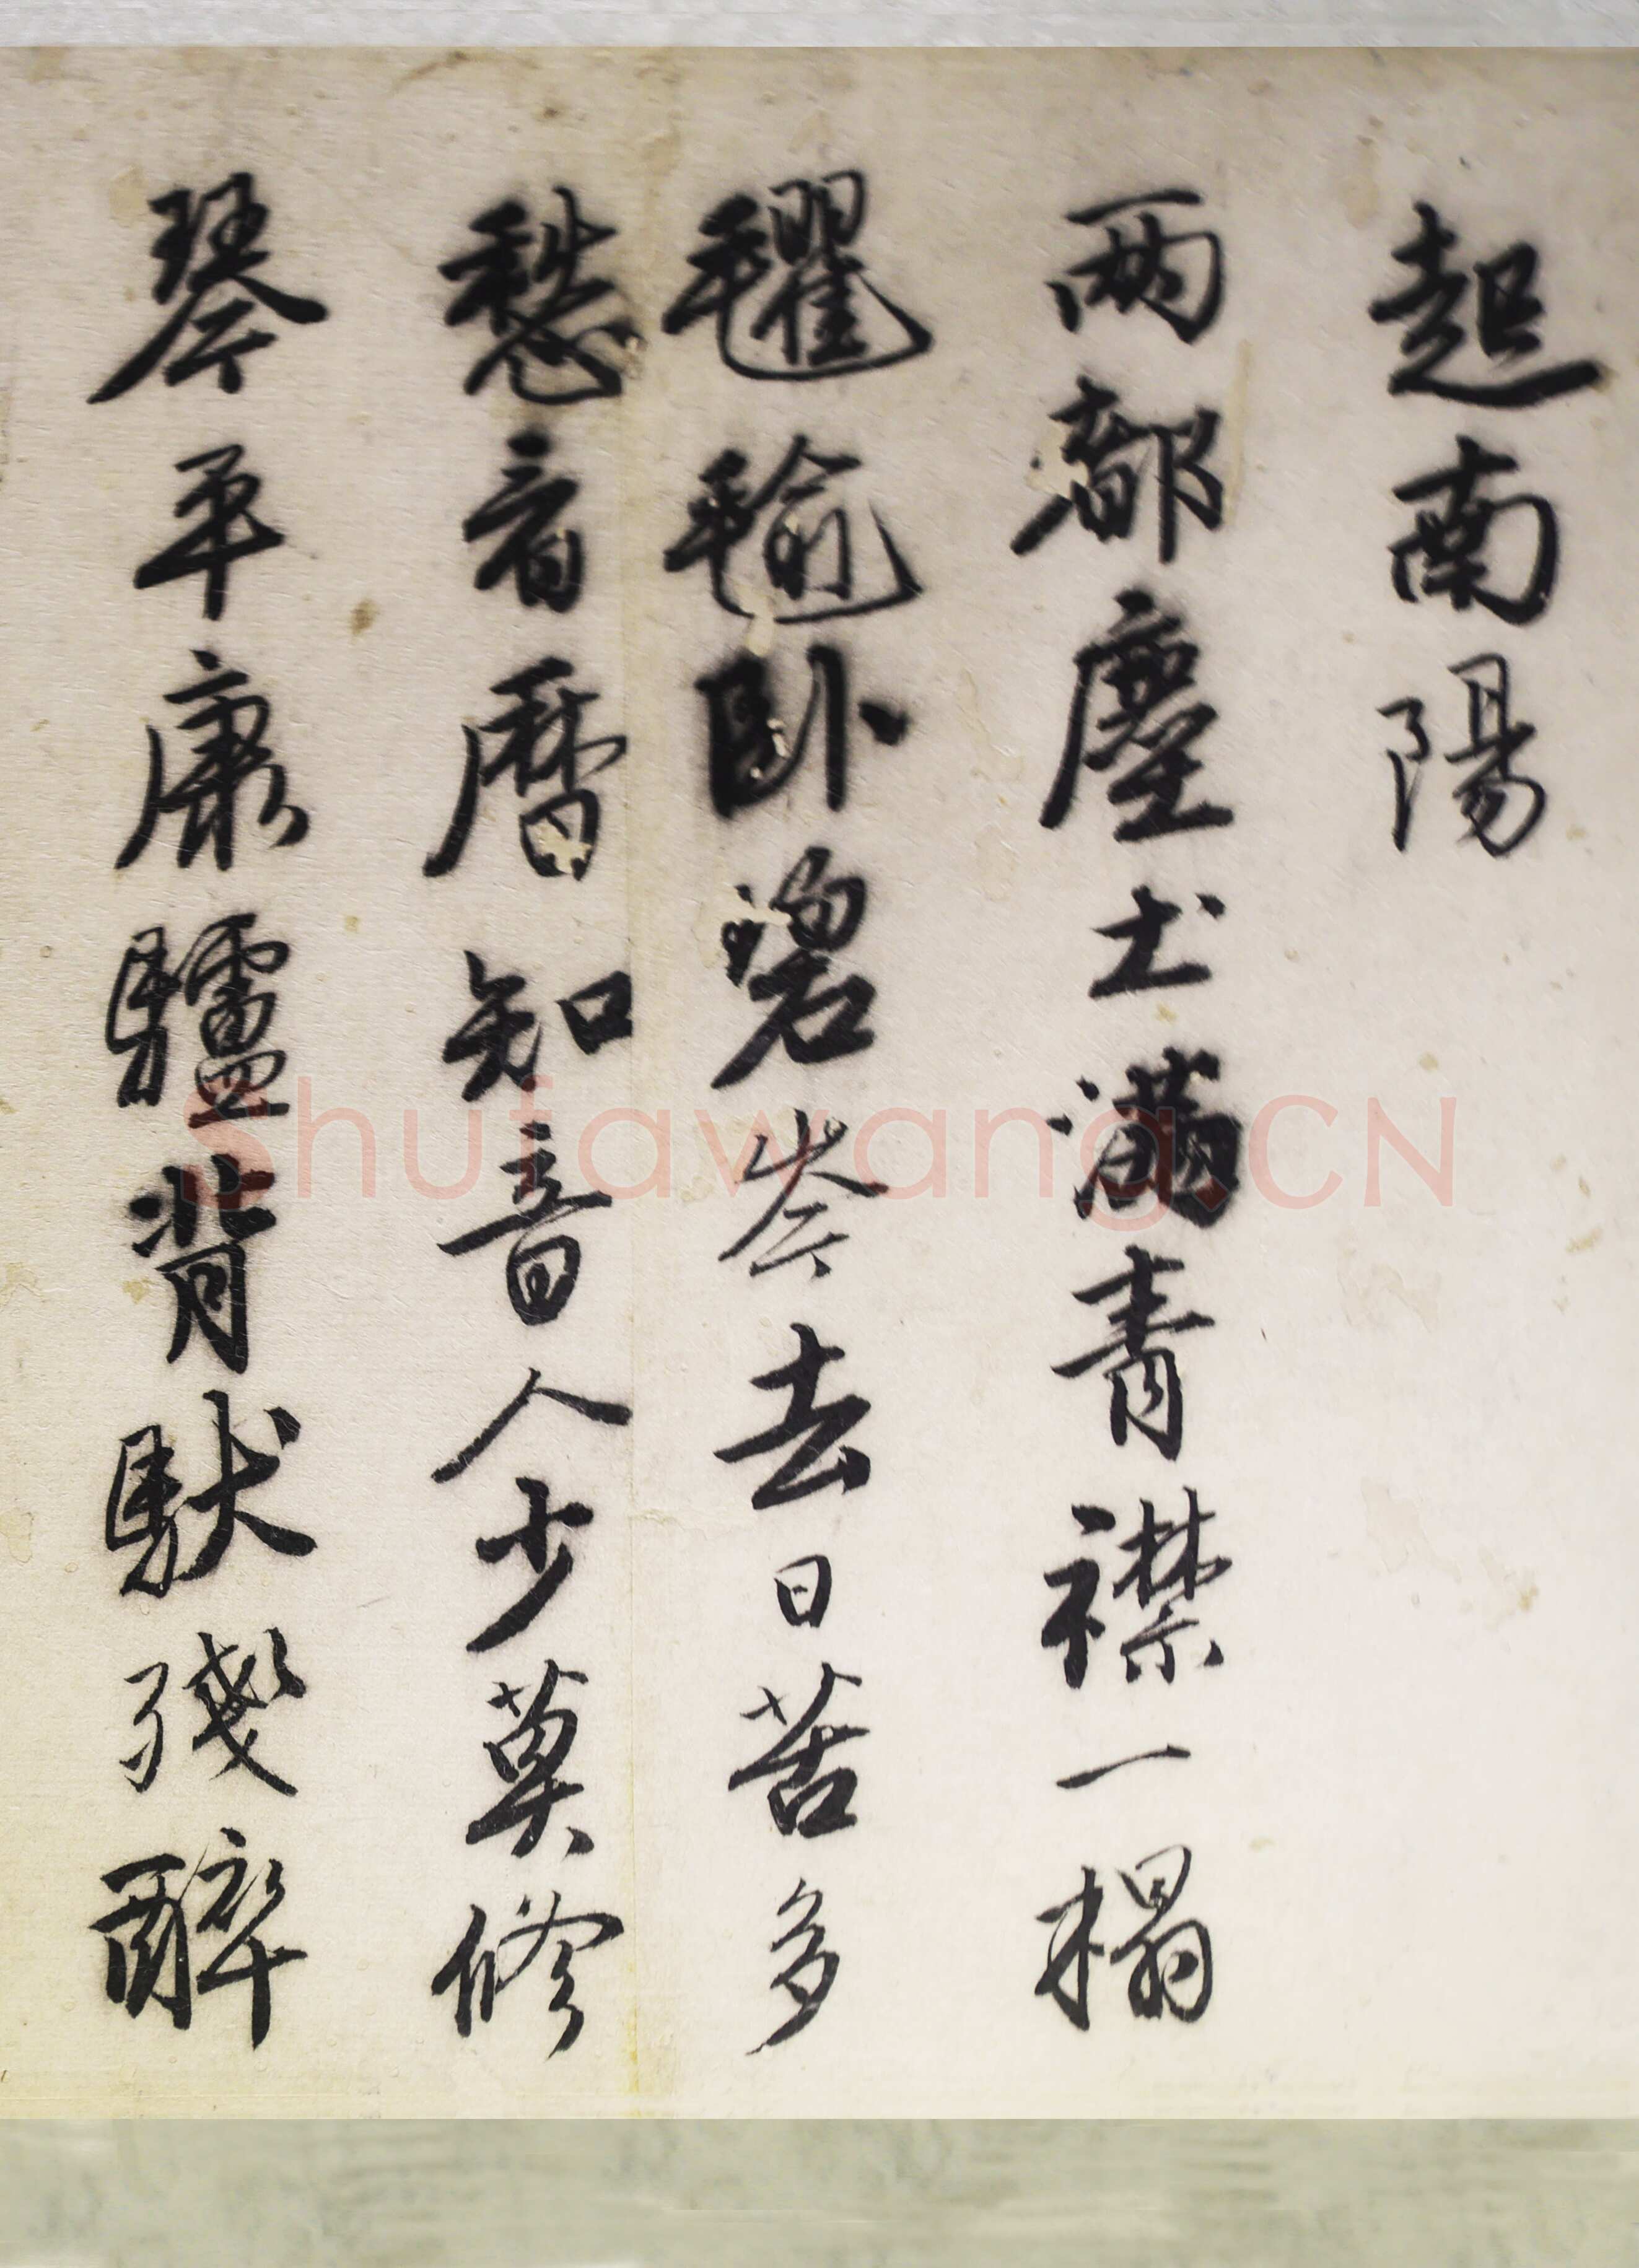 起南陽
兩都塵土滿青襟一榻
氍毹臥碧岑去日苦多
愁看曆知音人少莫修
琴平康驢背馱殘醉
shufawang.CN